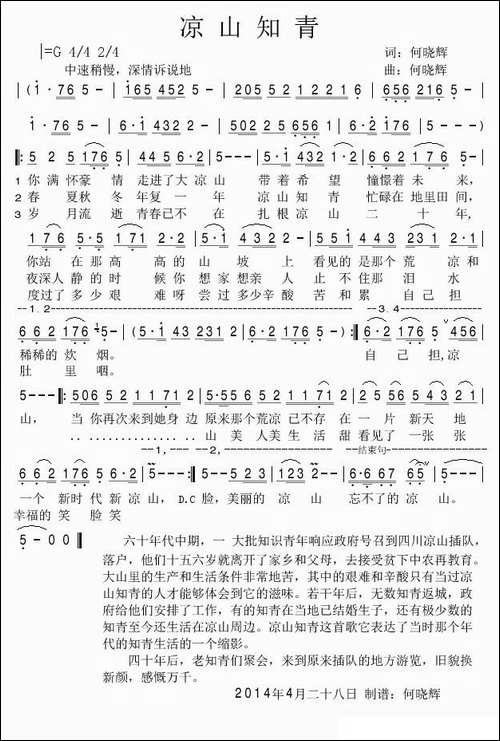 凉山知青
1=G 4/4 2/4
词：何晓辉
中速稍慢，深情诉说地
曲：何晓辉
|(1·765-|165 4525-|2055212216|65621 65-|
1·765-|6·1432-|50225 6561|6·21765|5---)|
‖:525 1765|44566·2|5---|5·1432 1·2|6·61765·6|
1你满怀豪情走进了大凉山 带着希望憧憬着未来，
2春夏秋冬年复一年 凉山知青忙碌在地里田间，
3岁月流逝青春已不在 扎根凉山二十年，
|1765·5|225 17 1 2·2|5·01 2-|5·533 443 231 2·1|
你站在那高高的山坡上看见的是那个荒凉和
夜深人静的时候你想家想亲人止不住那泪水
度过了多少艰难呀尝过多少辛酸苦和累自己担
--1.2-------------------------3.4------
662 176 5-|(5·1 43 231|2·1 662 176|5---):‖6·2 176 456|
稀稀的炊烟。自己担，凉
肚里咽。
5---‖:506 5212 1171 2·2|5·556 5212 1171 2·2|5·533 443 231 2·1|
山，当你再次来到她身边原来那个荒凉已不存在一片新天地
山美人美生活甜看见了一张张
--1,-- --2,-- --结束句--
662 176 6·2|5--:‖5--5523|1232-|6·66765|
一个新时代新凉山，D.C脸，美丽的凉山忘不了的凉山。
幸福的笑脸笑
5-00‖
六十年代中期，一大批知识青年响应政府号召到四川凉山插队，
落户，他们十五六岁就离开了家乡和父母，去接受贫下中农再教育。
大山里的生产和生活条件非常地苦，其中的艰难和辛酸只有当过凉
山知青的人才能够体会到它的滋味。若干年后，无数知青返城，政
府给他们安排了工作，有的知青在当地已结婚生子，还有极少数的
知青至今还生活在凉山周边。凉山知青这首歌它表达了当时那个年
代的知青生活的一个缩影。
四十年后，老知青们聚会，来到原来插队的地方游览，旧貌换
新颜，感慨万千。
2014年4月二十八日 制谱：何晓辉